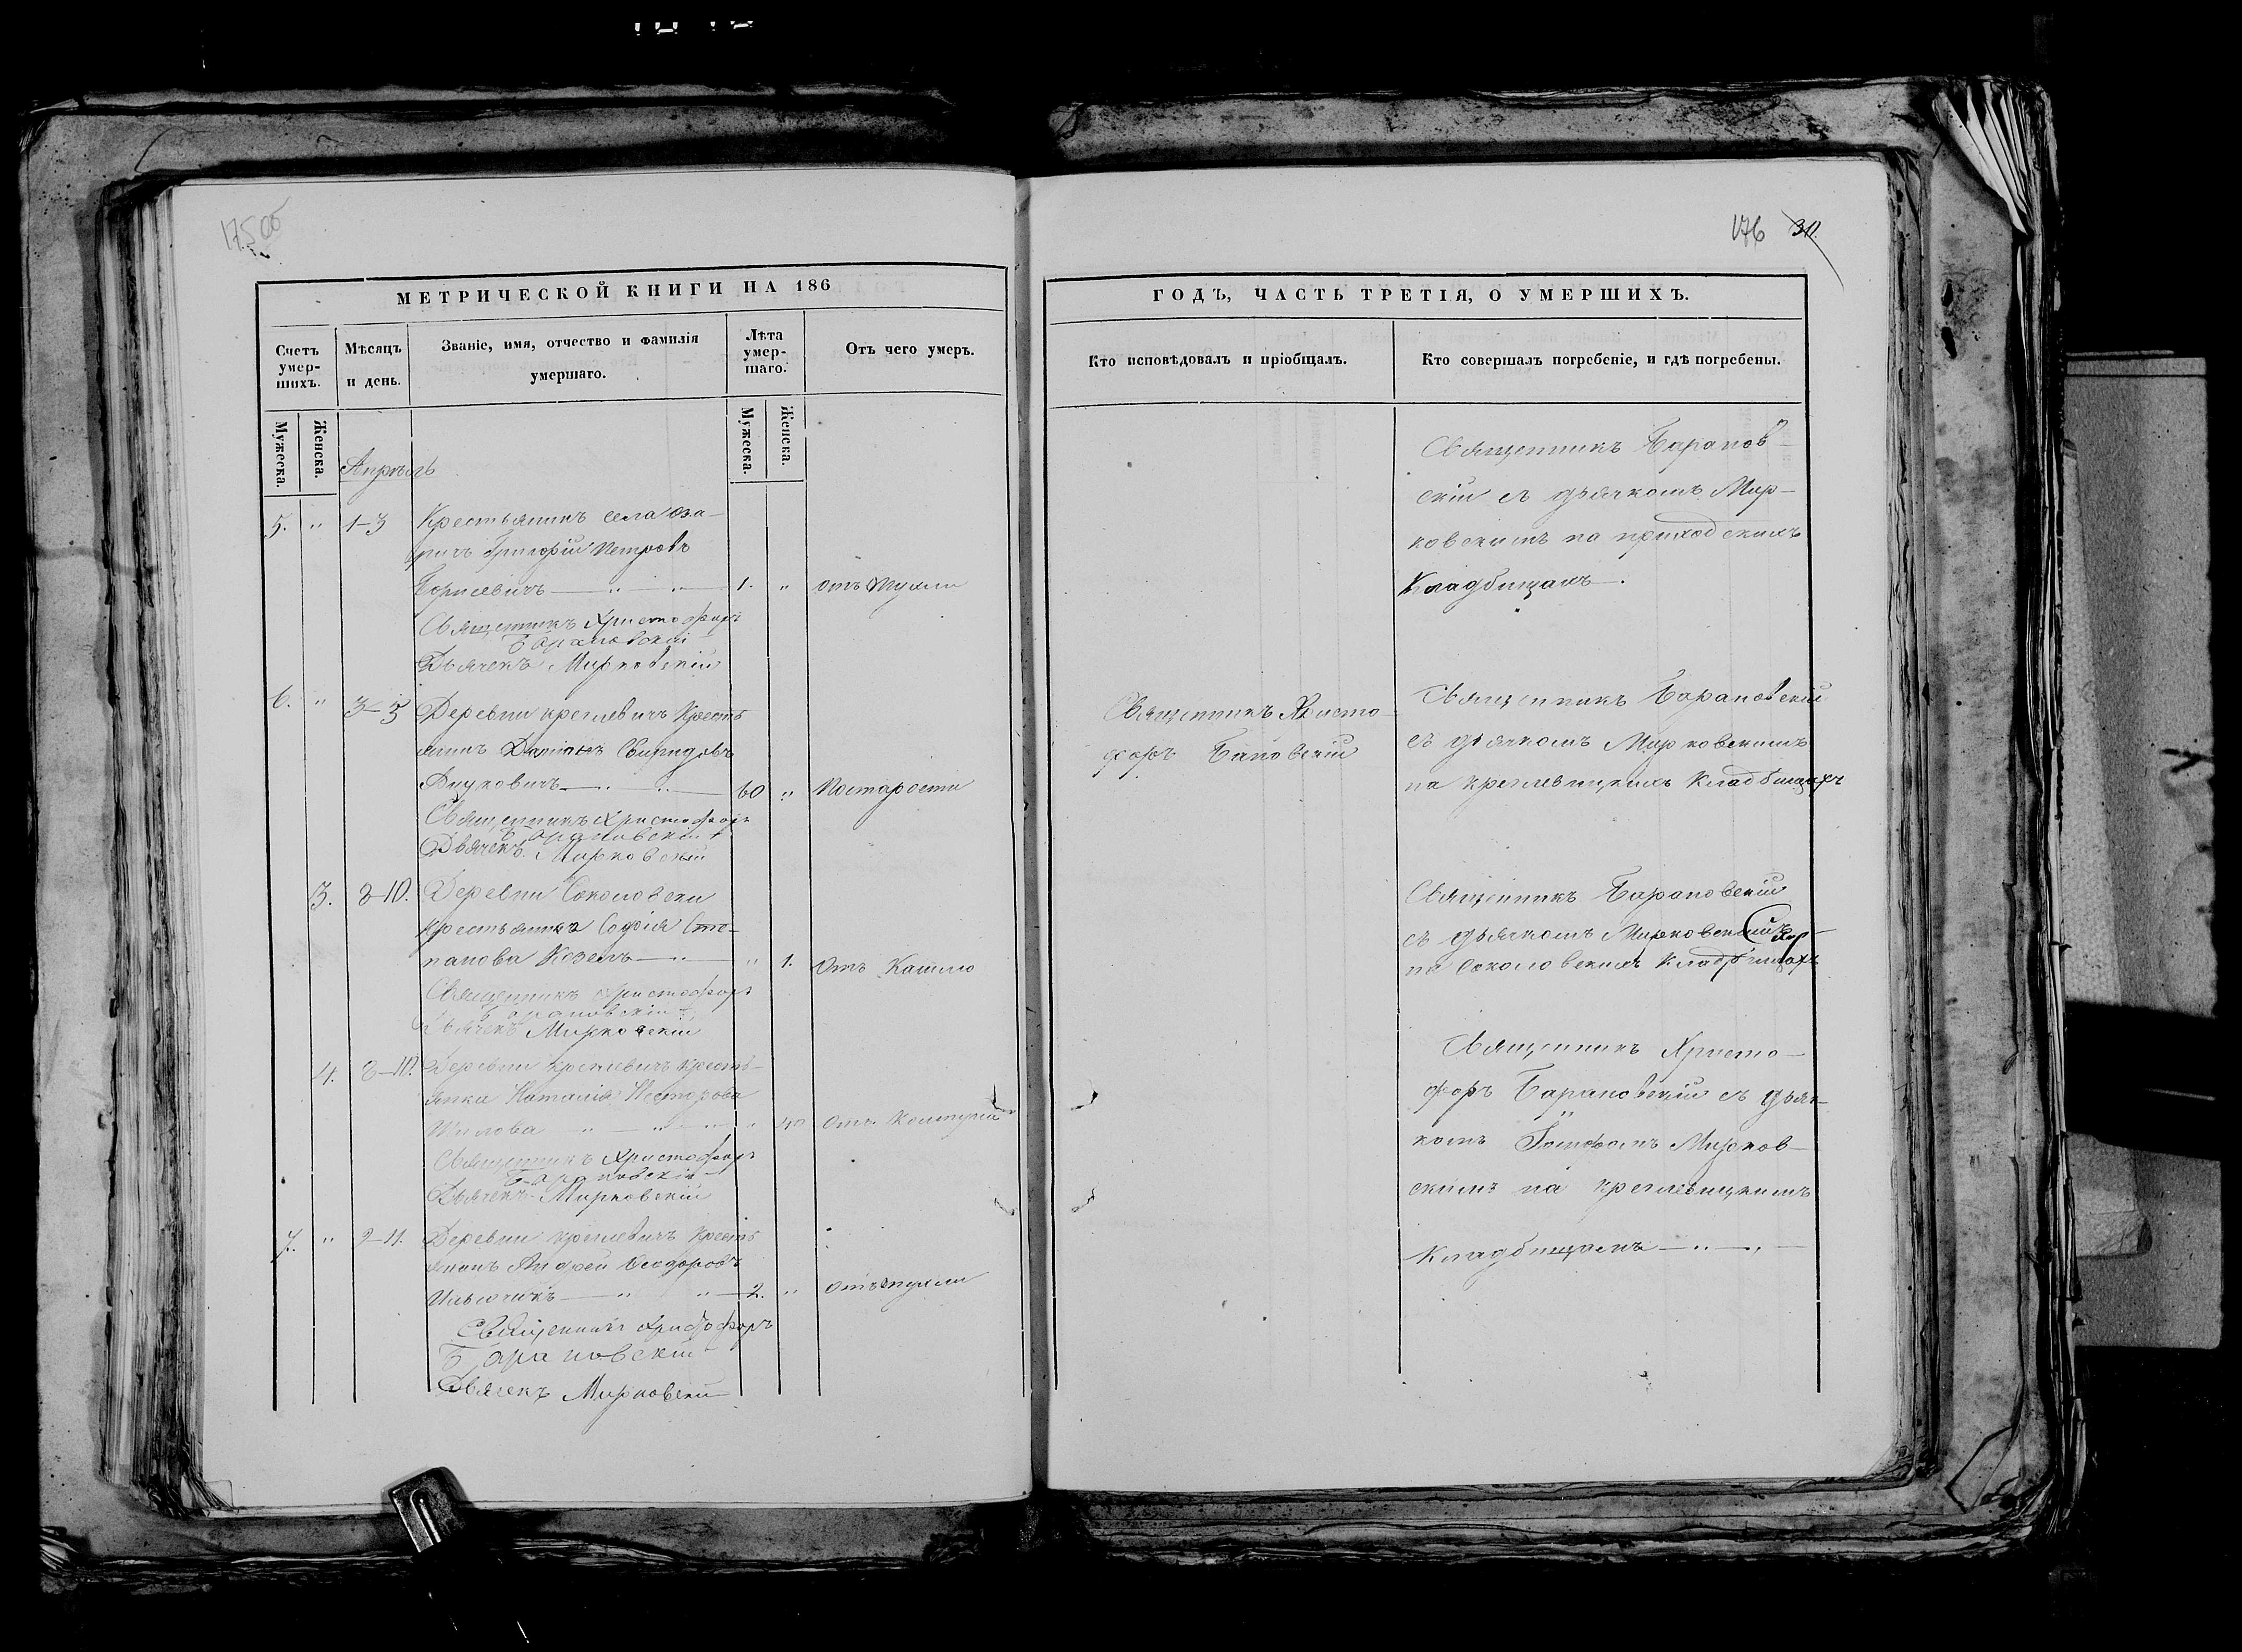 175 об
МЕТРИЧЕСКОЙ КНИГИ НА 186
Счетъ умер-шихъ.
Мѣсяцъ и день.
Званіе, имя, отчество и фамилія умершаго.
Лѣта умер-шаго.
Отъ чего умеръ.
Мужеска.
Женска.
Мужеска.
Женска.
Апрѣль
5. " 1-3 Крестьянинъ села Оза-
ричъ Григорій Петровъ
Борисевичъ — " — " — 1. "
Священникъ Христофоръ
Барановскій
Дьячекъ Мирковскій
6. " 3-5 Деревни Креглевичъ Кресть
янинъ Свиридовъ
60 " По старости
Священникъ Христофоръ
Барановскій
Дьячекъ Мирковскій
3. 8-10. Деревни Соколовки
крестьянка Софія Сте-
панова Козелъ — " — " 1. Отъ Кашлю
Священникъ Христофоръ
Барановскій
Дьячекъ Мирковскій
4. 8-10. Деревни Креглевичъ Кресть-
янка Наталія Несторова
" 40 Отъ
Священникъ Христофоръ
Барановскій
Дьячекъ Мирковскій
7. " 9-11. Деревни Креглевичъ Кресть
янинъ Андрей Ѳеодоровъ
— " " — 2. "
Священникъ Христофоръ
Барановскій
Дьячекъ Мирковскій
176 30.
ГОДЪ, ЧАСТЬ ТРЕТІЯ, О УМЕРШИХЪ.
Кто исповѣдовалъ и пріобщалъ.
Кто совершалъ погребеніе, и гдѣ погребены.
Священникъ Баранов-
скій съ дьячкомъ Мир-
ковскимъ на приходскихъ
Кладбищахъ.
Священникъ Христо-
форъ Бановскій
Священникъ Барановскій
съ дьячкомъ Мирковскимъ
на Креглевицкихъ Кладбищахъ
Священникъ Барановскій
съ дьячкомъ Мирковскимъ
на Соколовскихъ Кладбищахъ
Священникъ Христо-
форъ Барановскій съ дьяч-
комъ Мирков-
скимъ на Креглевицкимъ
Кладбищахъ — " — " —